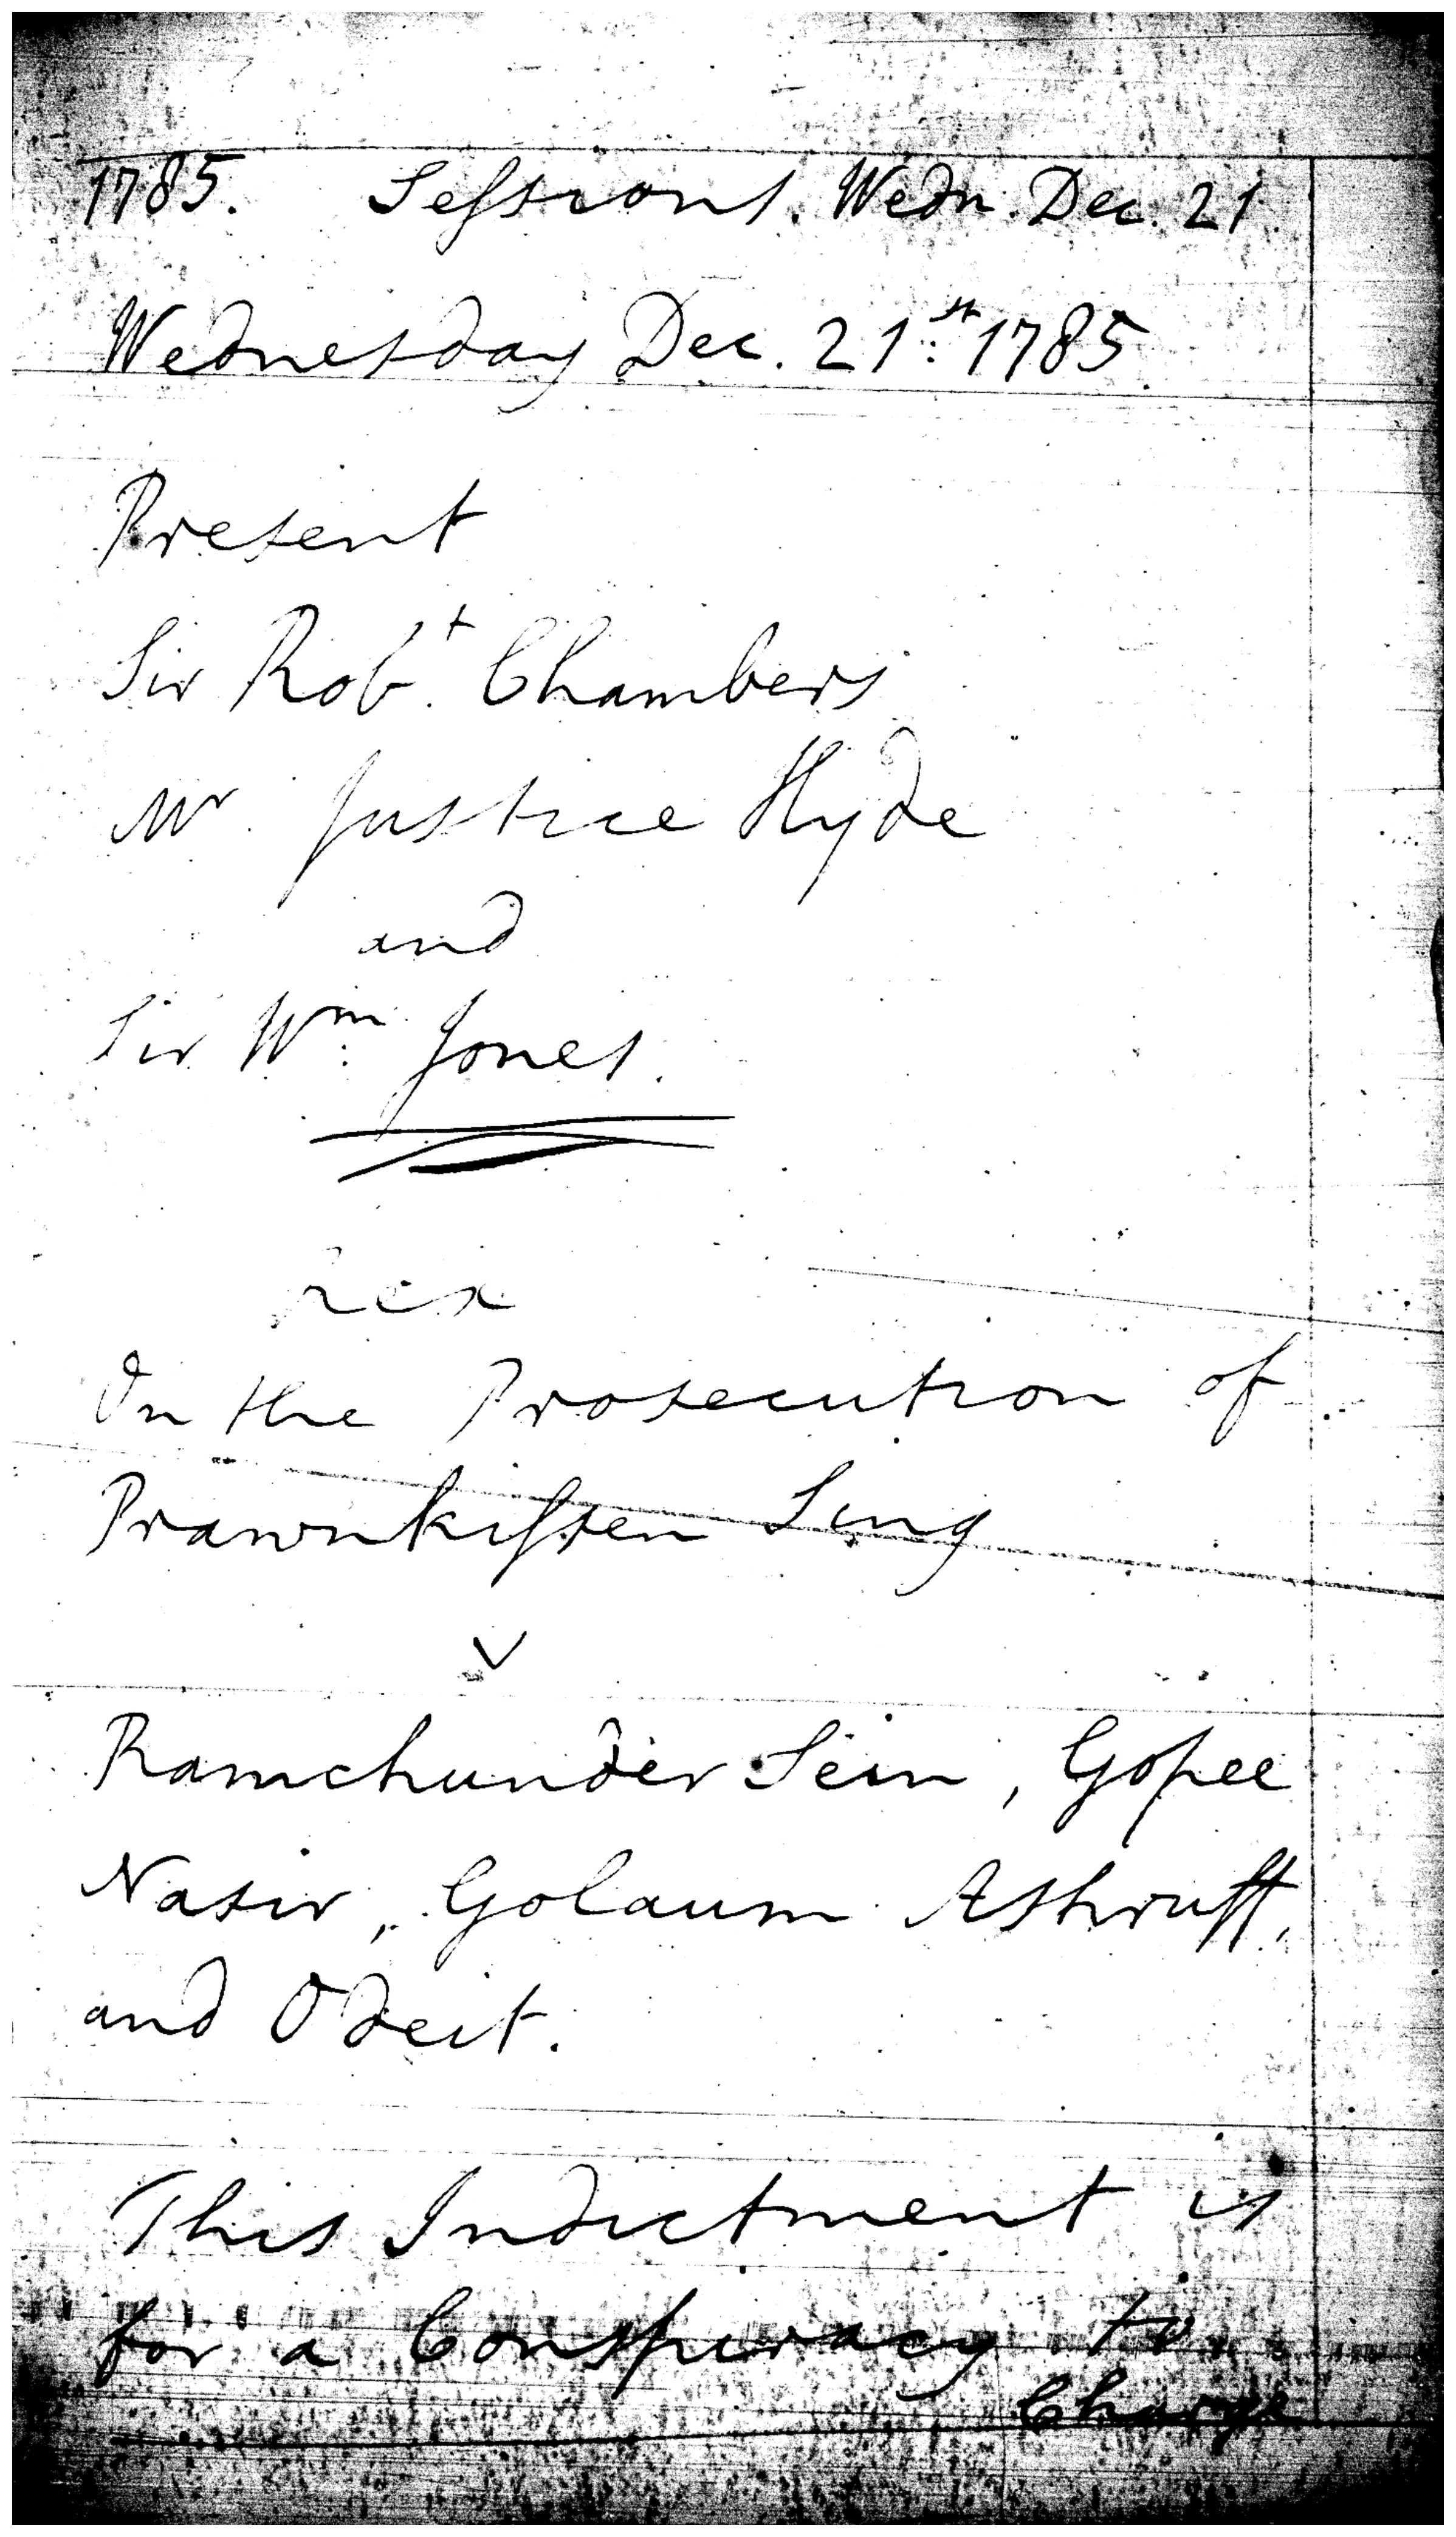 1785. Sessions. Wedn. Dec. 21.
Wednesday Dec. 21st. 1785.
Present
Sir Robt. Chambers
Mr. Justice Hyde
and
Sir Wm. Jones.
Rex
On the Prosecution of
Prawnkissen Sing
v
Ramchunder Sein, Gopee
Nasir, Golaum Ashruff,
and Odeit.
This Indictment is
for a Conspiracy to
Charge